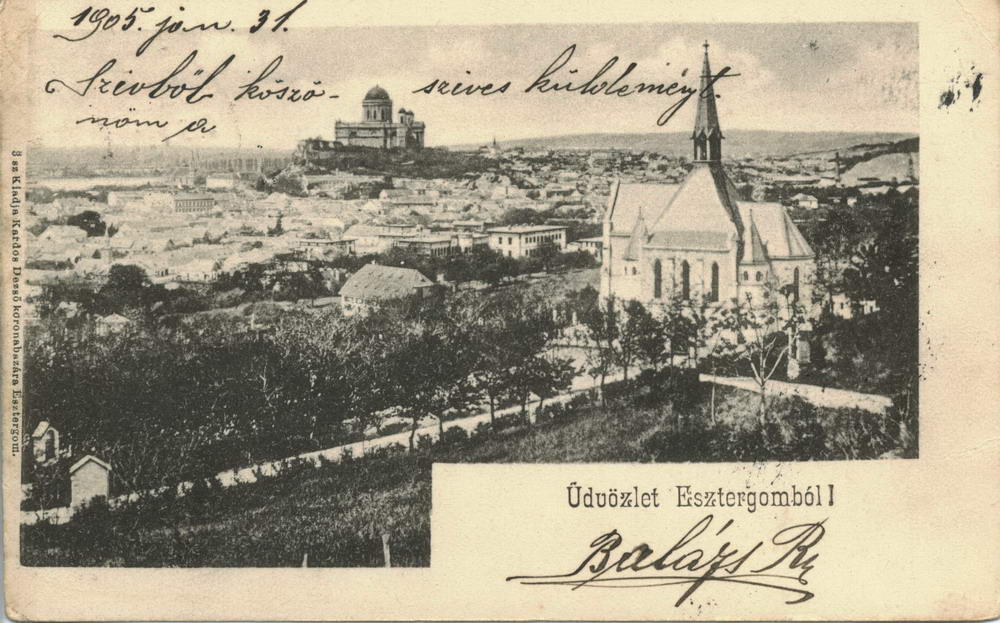 1905. jan. 31.
Szivből köszö- szives küldeményt.
nöm a
3 sz Kiadja Kardos Dezső koronabazára Esztergom.
Üdvözlet Esztergomból!
Balázs